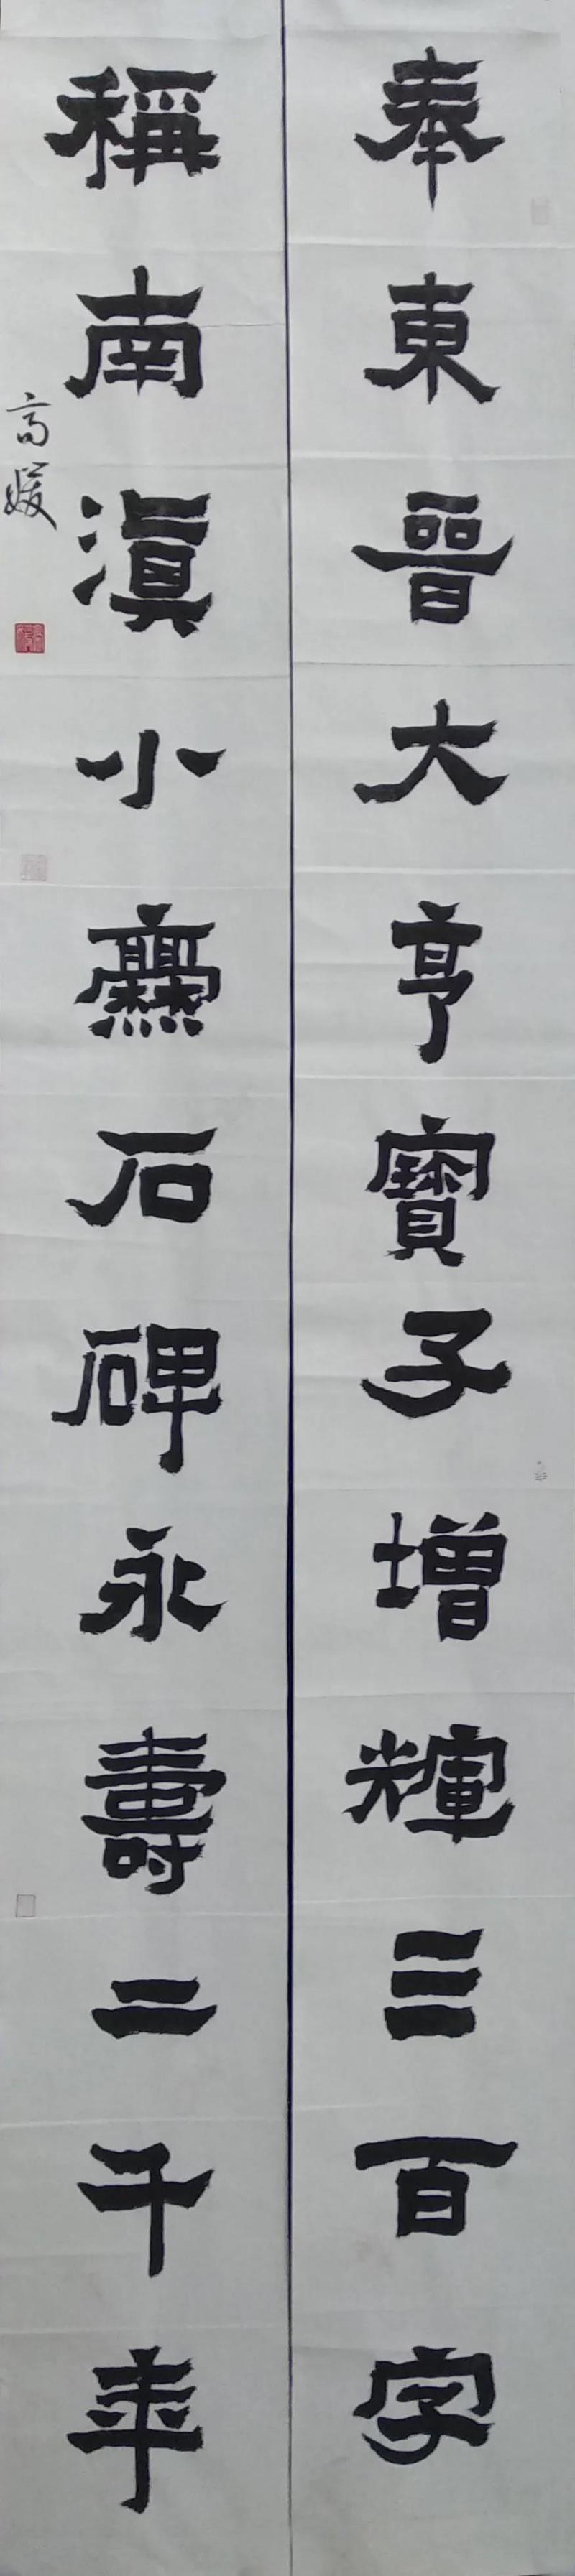 奉東晉大亨寶子增輝三百字
稱南滇小爨石碑永壽二千年
高媛